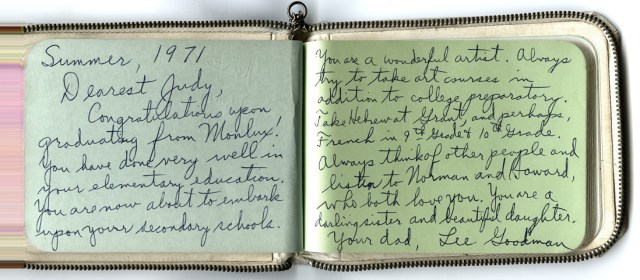 Summer, 1971
Dearest Judy,
Congratulations upon
graduating from Mowluy!
You have done very well in
your elementary education.
You are now about to embark
upon your secondary schools.
You are a wonderful artist. Always
try to take art courses in
addition to college preparatory.
Take Hebrew at Grant, and perhaps,
French in 9th Grade & 10th Grade.
Always think of other people and
listen to Norman and Howard,
who both love you. You are a
darling sister and beautiful daughter.
Your dad, Lee Goodman